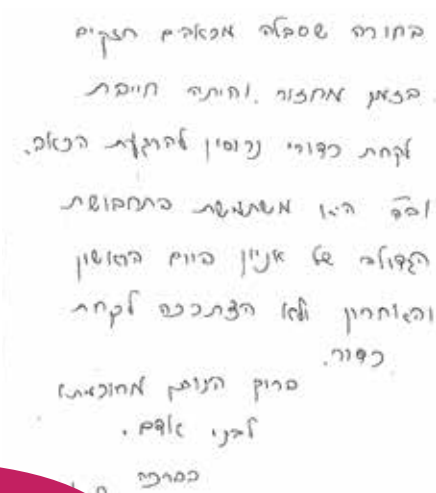 בחורה שסבלה מכאבים חזקים
בזמן מחזור. והיתה חייבת
לקחת כדורי נרוסין להרגעת הכאב.
היא משתמשת בתחבושת
הגדולה של אניון ביום הראשון
והאחרון ולא לקחת
כדור.
ברוך הנותן מחוכמתו
לבני אדם.
בברכה